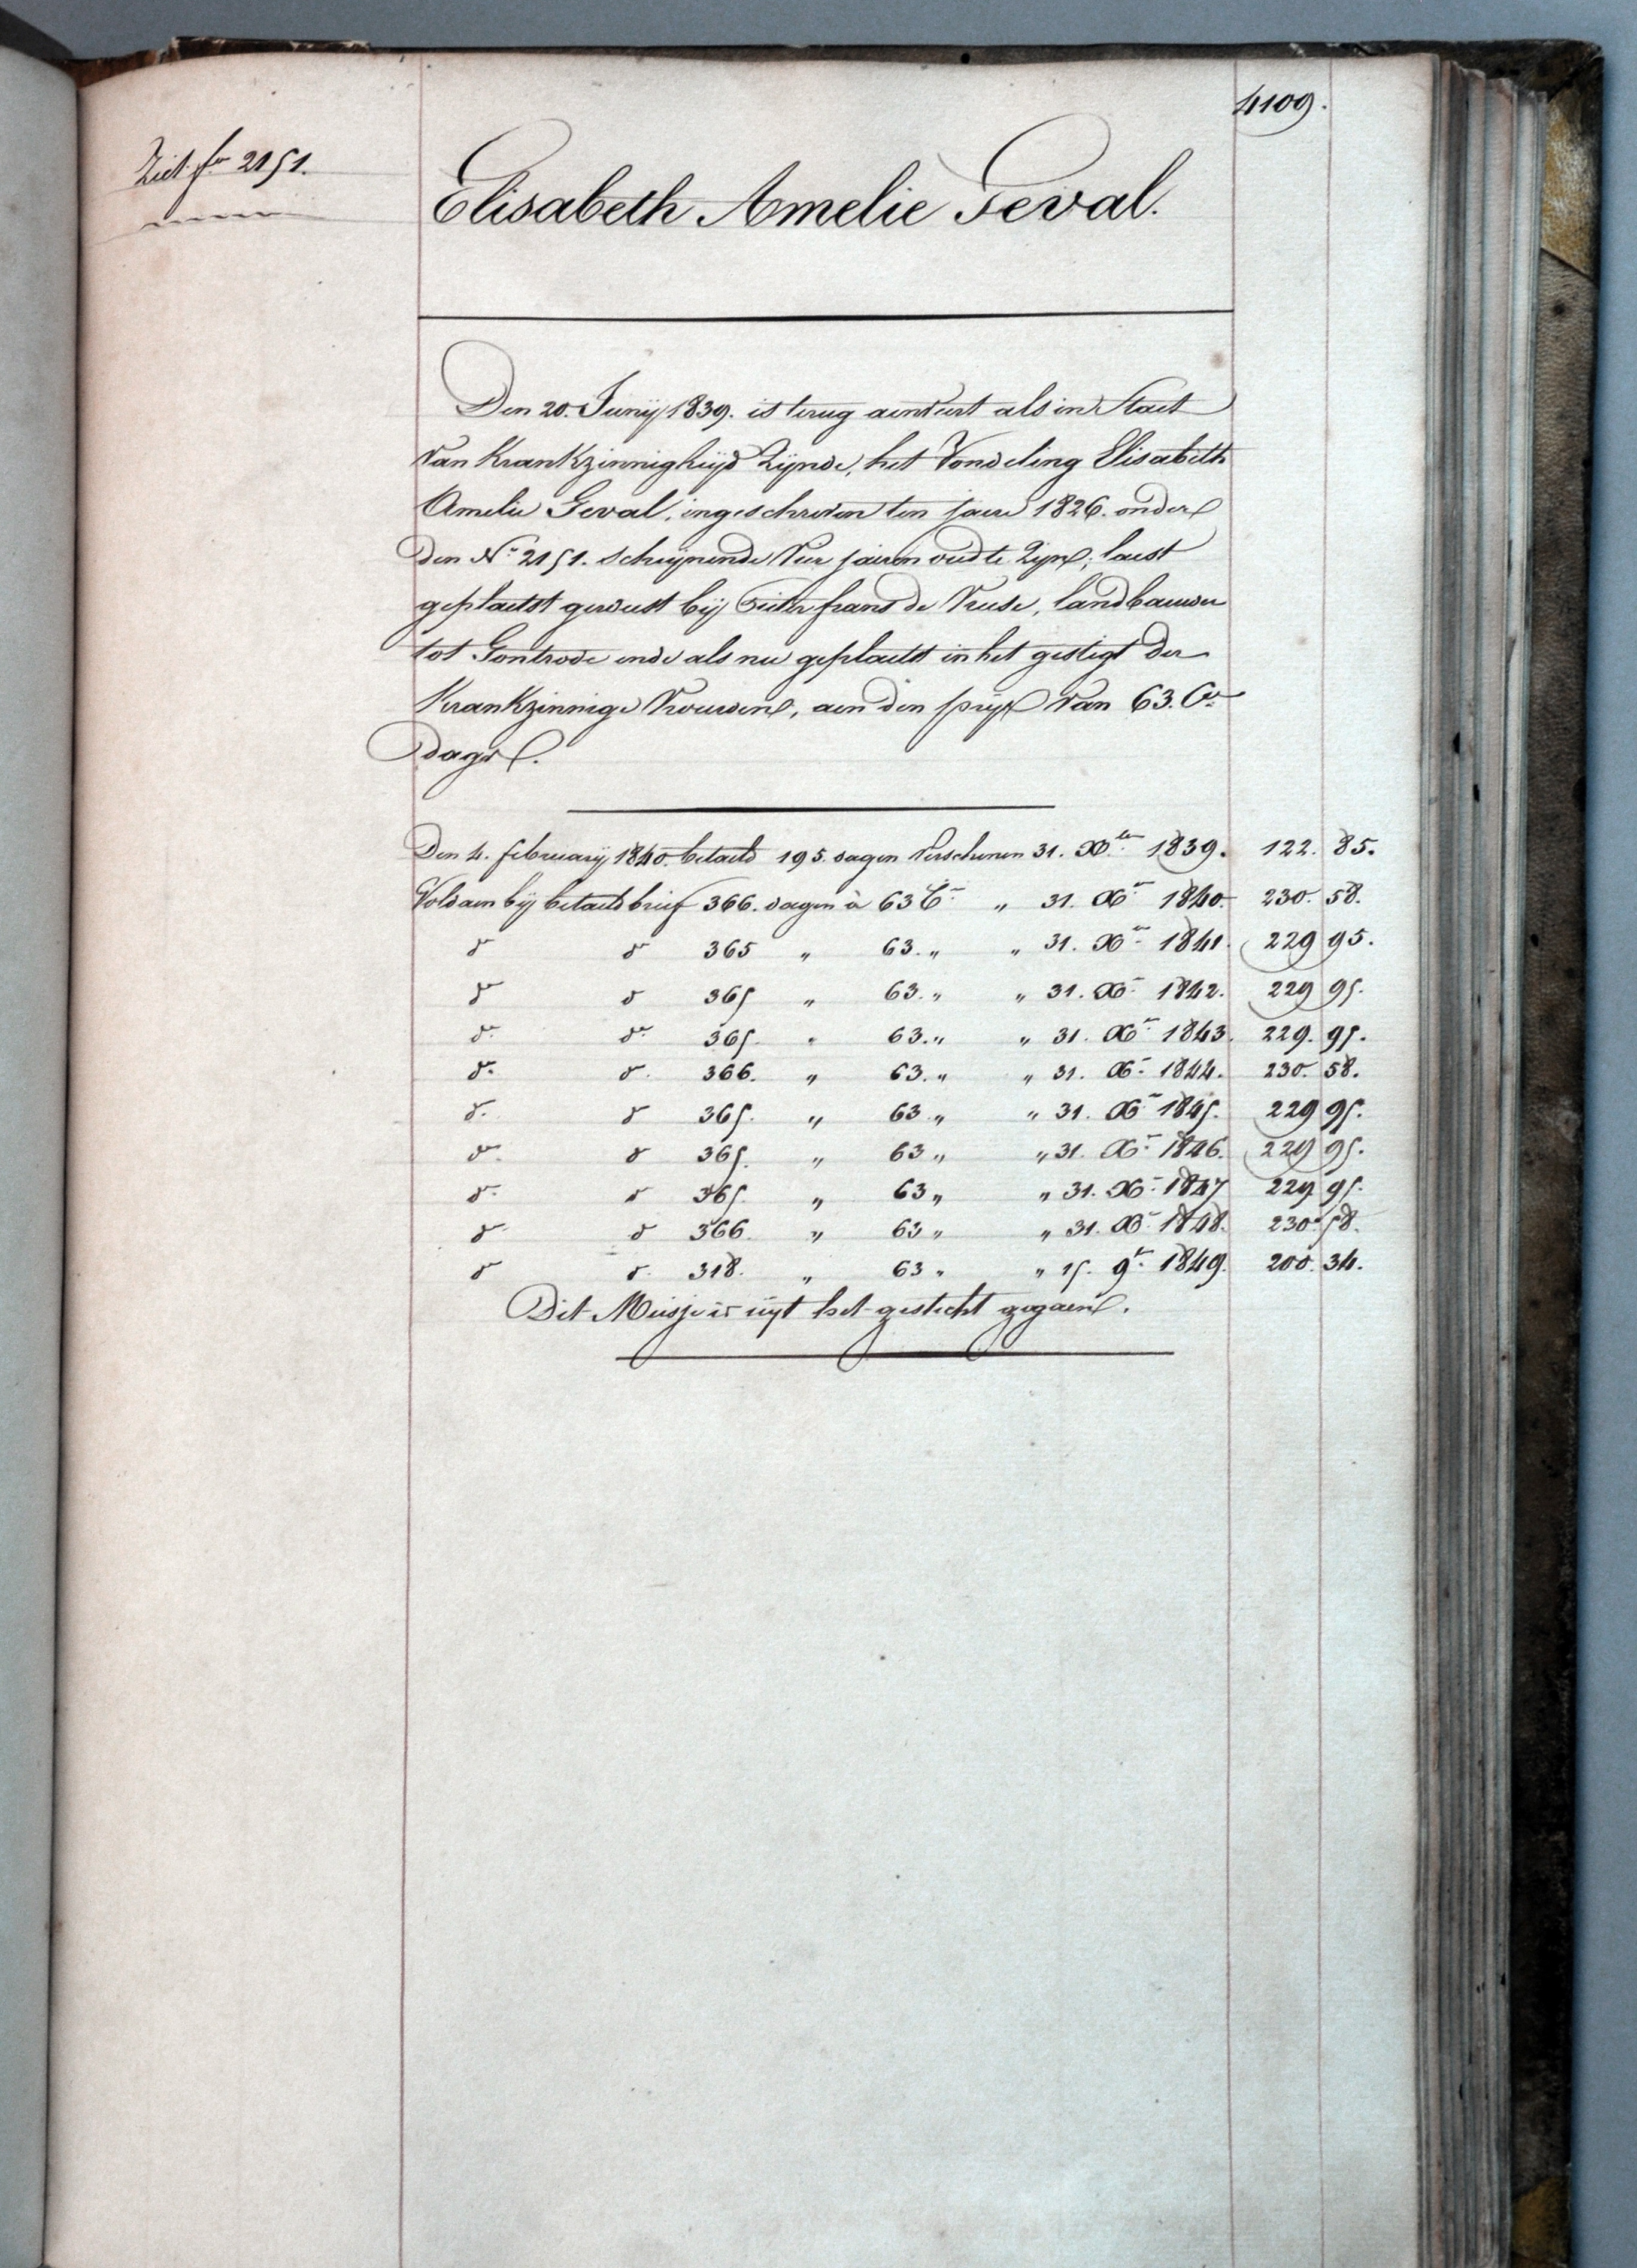 4109.
Ziet fo 2151.
Elisabeth Amelie Geval.
Den 20. Junij 1839. is terug aenveirt als in Staet
van Krankzinnighijd Zijnde, het Vondeling Elisabeth
Amelie Geval, ingeschreven ten jaere 1826. onder
den No 2151. Schijnende vier jaeren oud te Zijn; laest
geplaetst geweest bij Pieter frans de Vreese, landbauwer
tot Gontrode ende als nu geplaetst in het gestigt der
Krankzinnige Vrouwen, aen den prijs van 63. Cs
daegs.
Den 4. february 1840 betaeld 195. dagen verschenen 31. Xber 1839. 122. 85.
Voldaen bij betaelsbrief 366. dagen à 63 Cs " 31. Xr 1840. 230. 58.
do do 365 " 63. " " 31. Xr 1841. 229 95.
do do 365 " 63. " " 31. Xr 1842. 229 95.
do do 365. " 63. " " 31. Xr 1843. 229. 95.
do do 366. " 63. " " 31. Xr 1844. 230. 58.
do do 365. " 63. " " 31. Xr 1845. 229 95.
do do 365. " 63 " " 31. Xr 1846. 229 95.
do do 365. " 63 " " 31. Xr 1847 229 95.
do do 366. " 63 " " 31. Xr 1848. 230. 58.
do do 318. " 63 " " 15. 9r 1849. 200. 34.
Dit Meisje is uijt het gesticht gegaen.